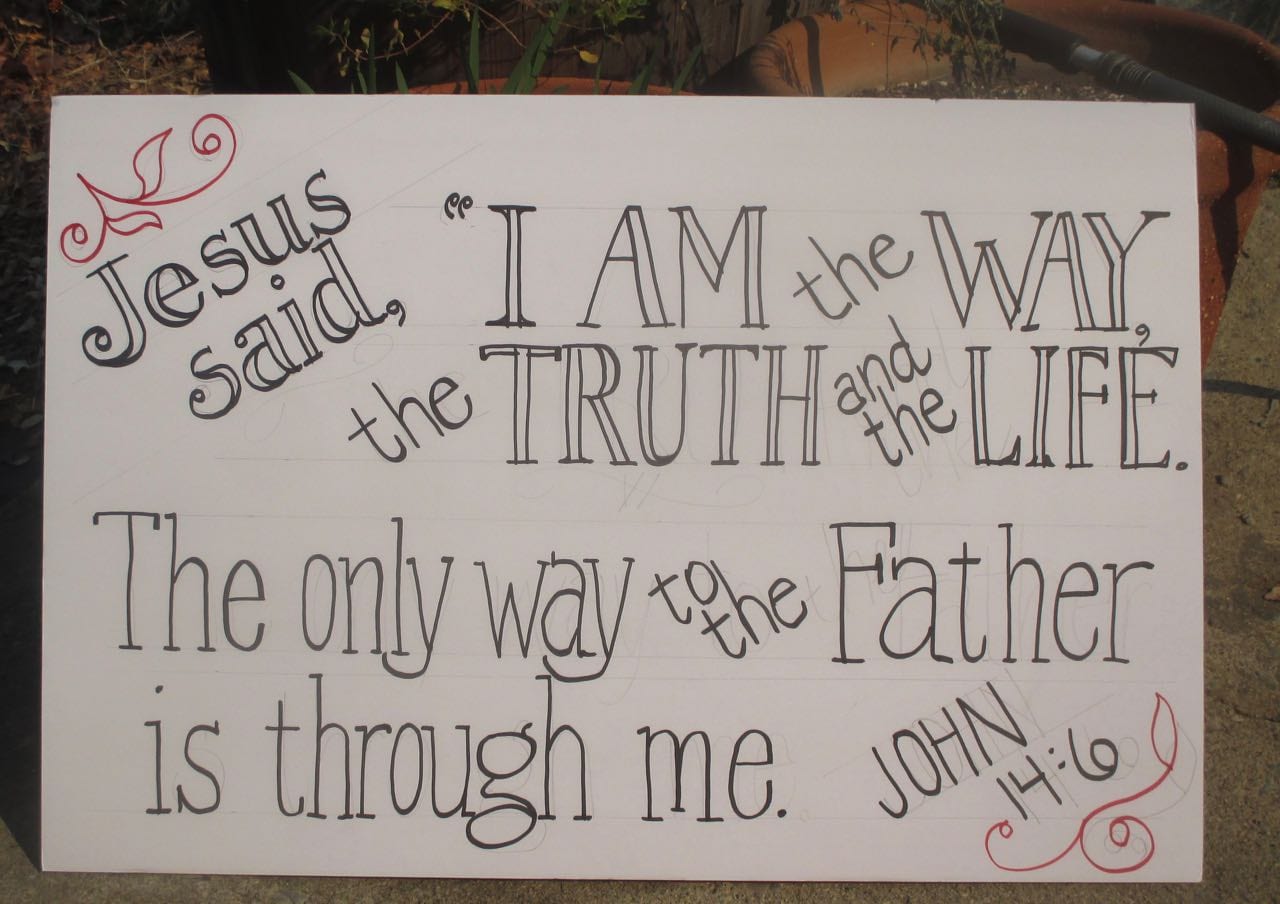 Jesus
said,
“I AM the WAY,
the TRUTH and the LIFE.
The only way to the Father
is through me.
JOHN
14:6